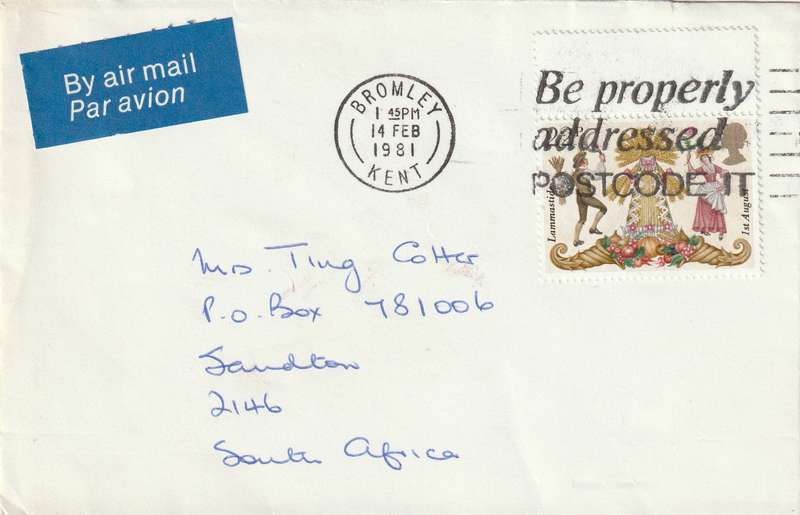 By air mail
Par avion
BROMLEY
1 45PM
14 FEB
1981
KENT
Be properly
addressed
POSTCODE IT
Lammastide
1st August
Mrs. Ting Cotter
P.O. Box 781006
Sandton
2146
South Africa